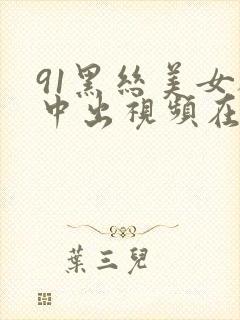 91黑丝美女
中出視頻在
葉三兒